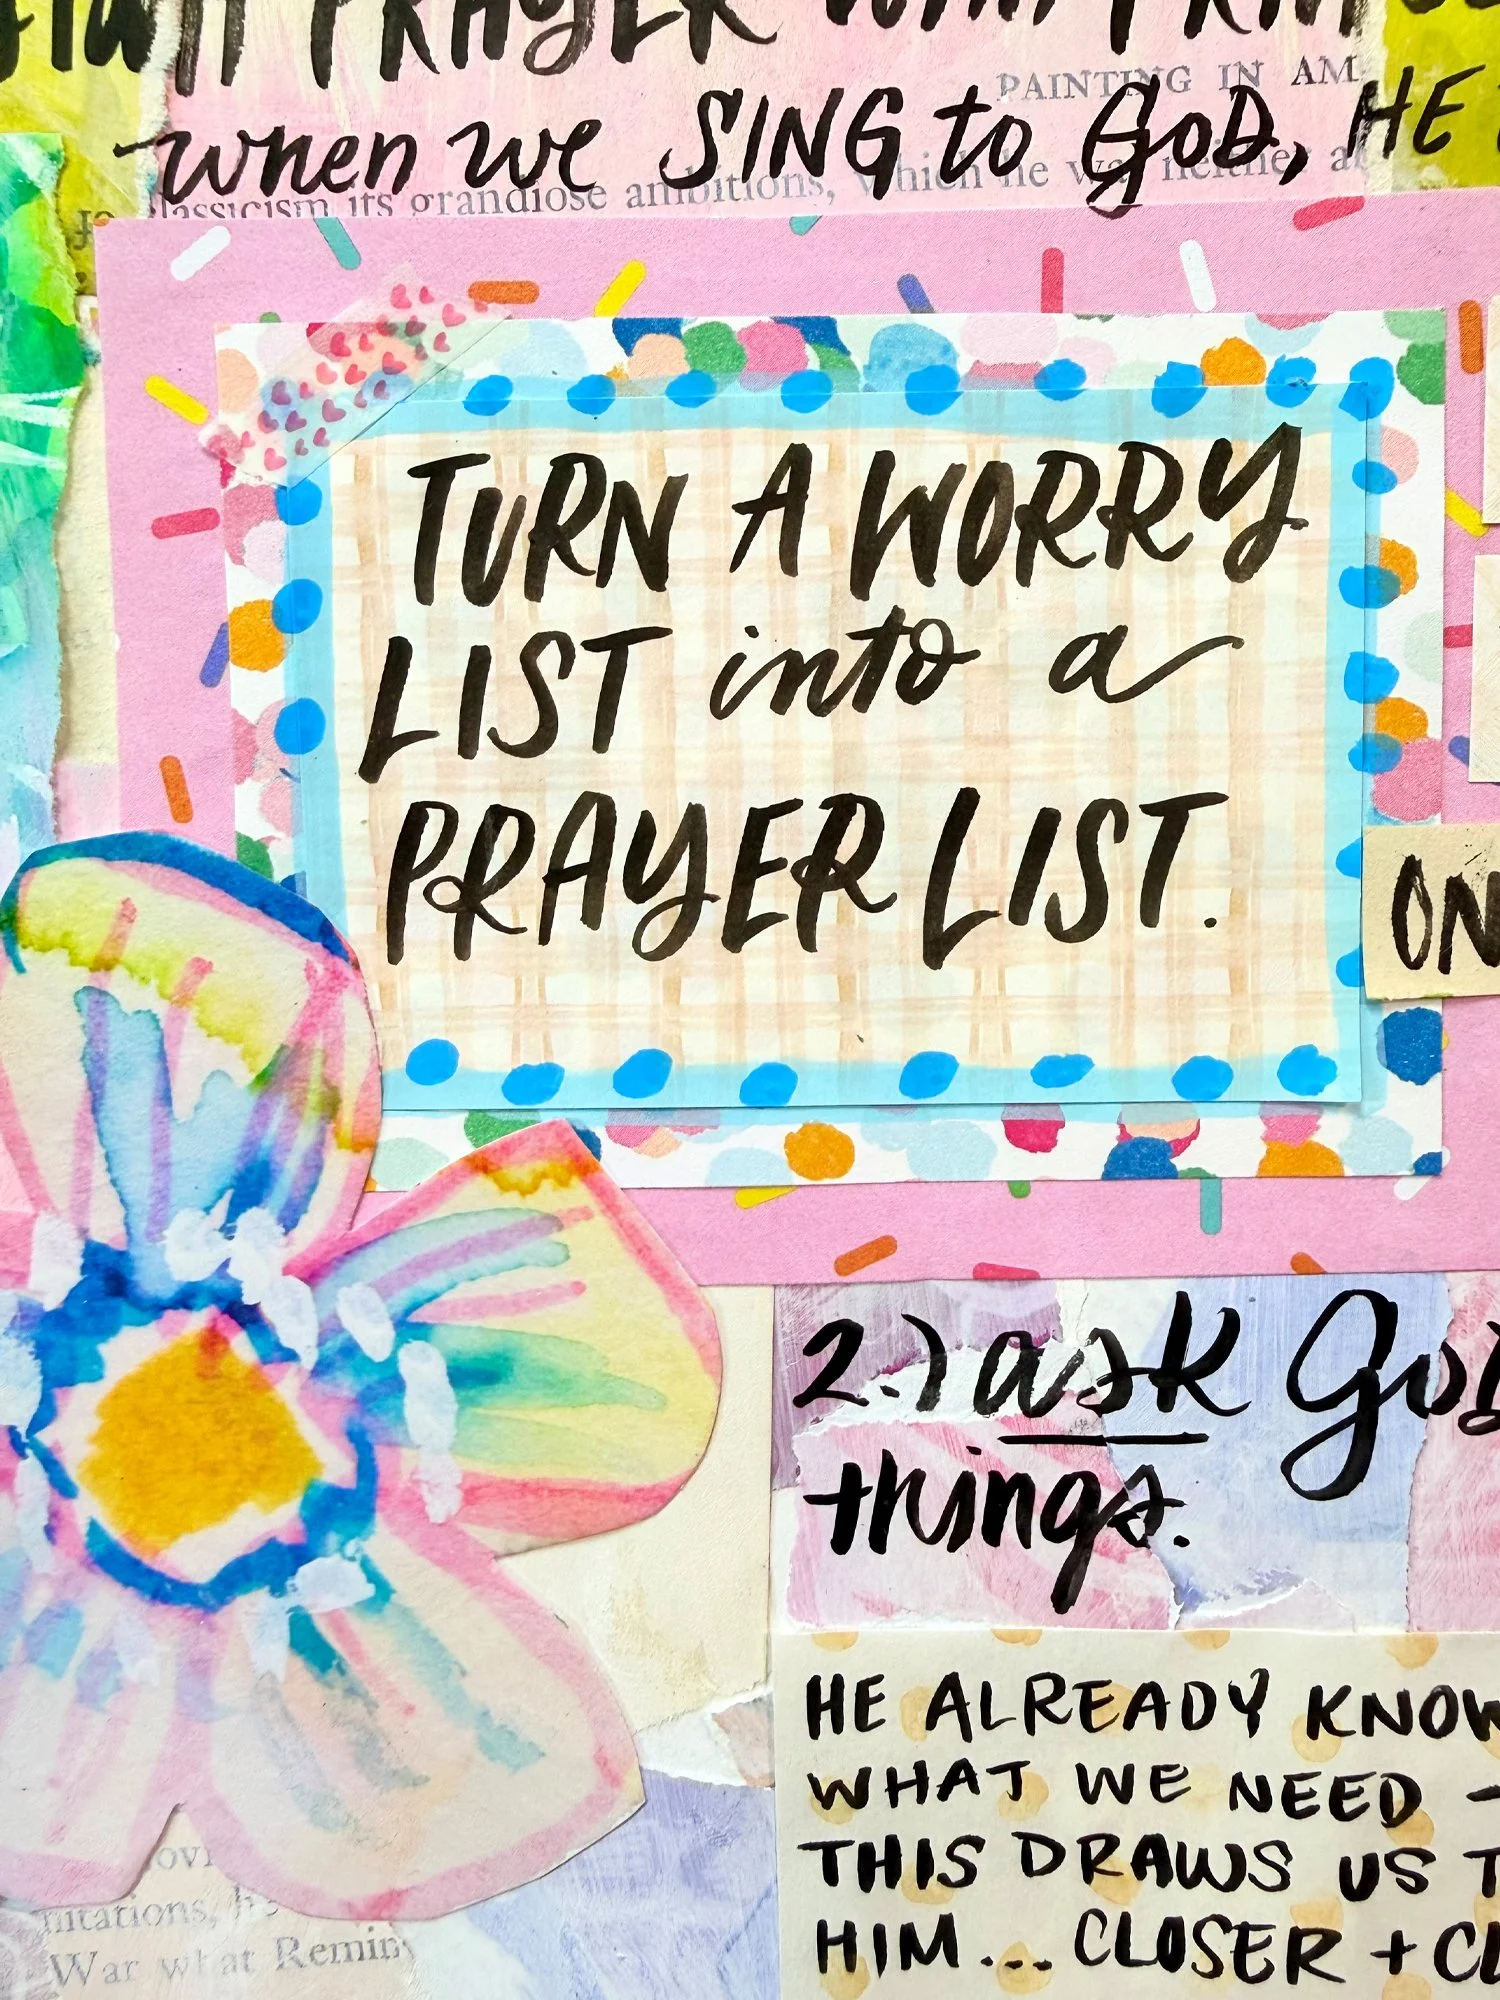 PRAYER
PAINTING IN AM
when we SING to GOD, HE
classicism its grandiose ambitions, which he was neither
TURN A WORRY
LIST into a
PRAYER LIST.
ON
2.) ask GOD
things.
HE ALREADY KNOW
WHAT WE NEED -
THIS DRAWS US T
HIM... CLOSER + CL
War what Remin